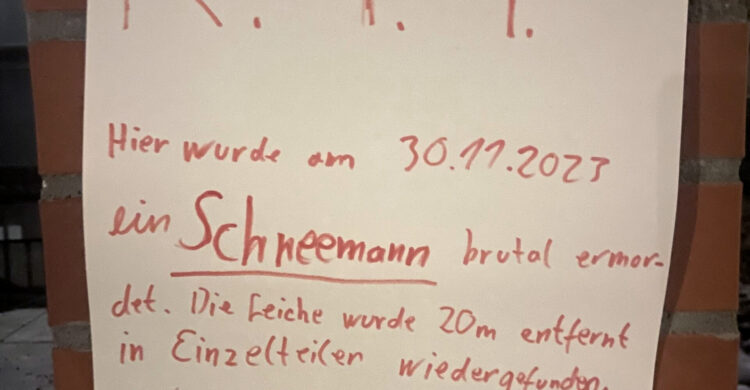 R. I. P.
Hier wurde am 30.11.2023
ein Schneemann brutal ermor-
det. Die Leiche wurde 20m entfernt
in Einzelteilen wiedergefunden.